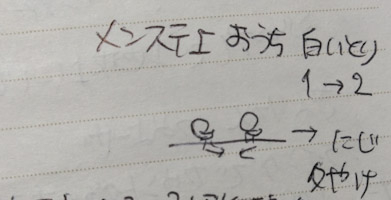 メンステエ おうち 白(いとり)
1→2
→ にじ
夕やけ